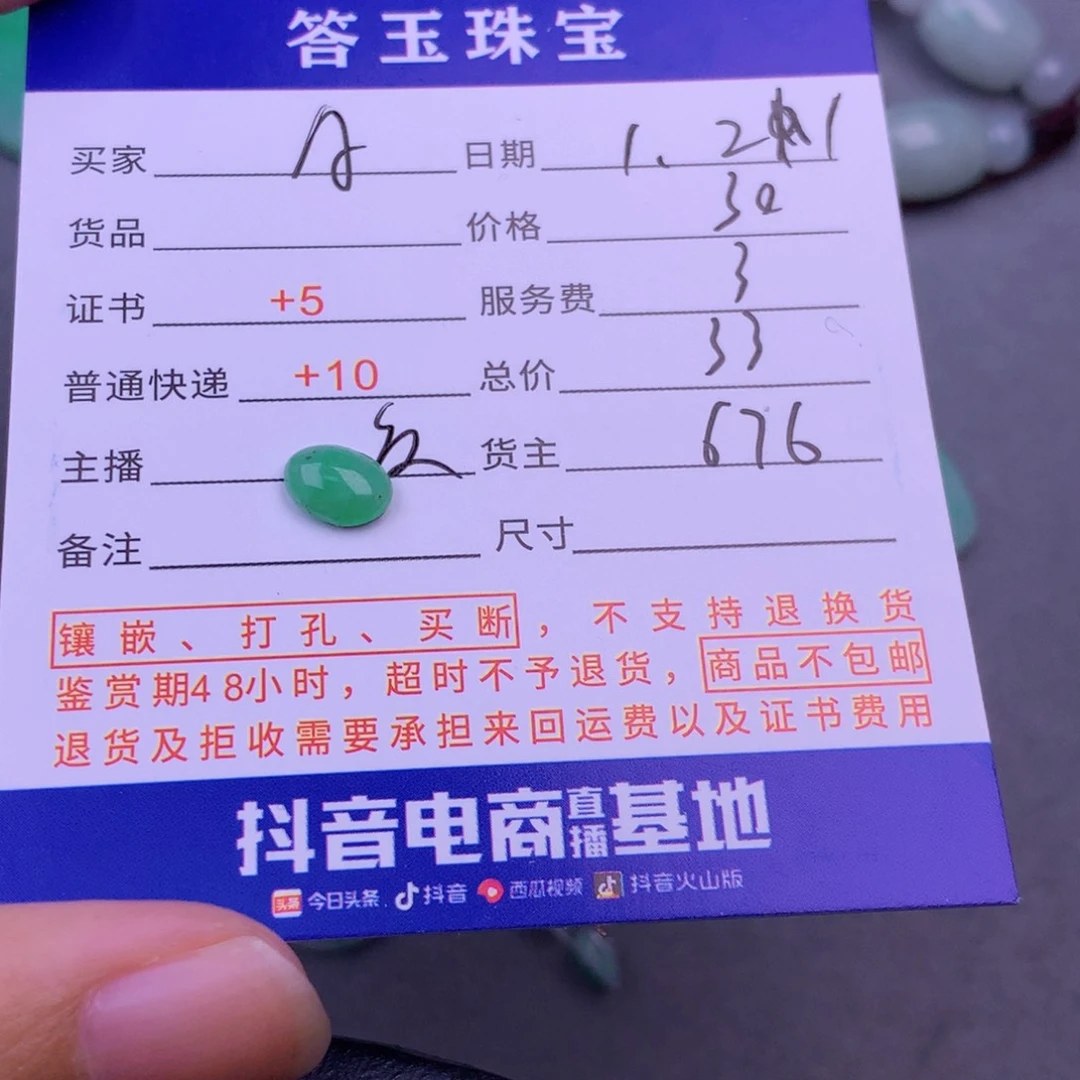 答玉珠宝
买家 A 日期 1.21
货品 价格 30
证书 +5 服务费 3
普通快递 +10 总价 33
主播 货主 676
备注 尺寸
镶嵌、打孔、买断，不支持退换货
鉴赏期48小时，超时不予退货，商品不包邮
退货及拒收需要承担来回运费以及证书费用
抖音电商直播基地
头条 今日头条 抖音 西瓜视频 抖音火山版